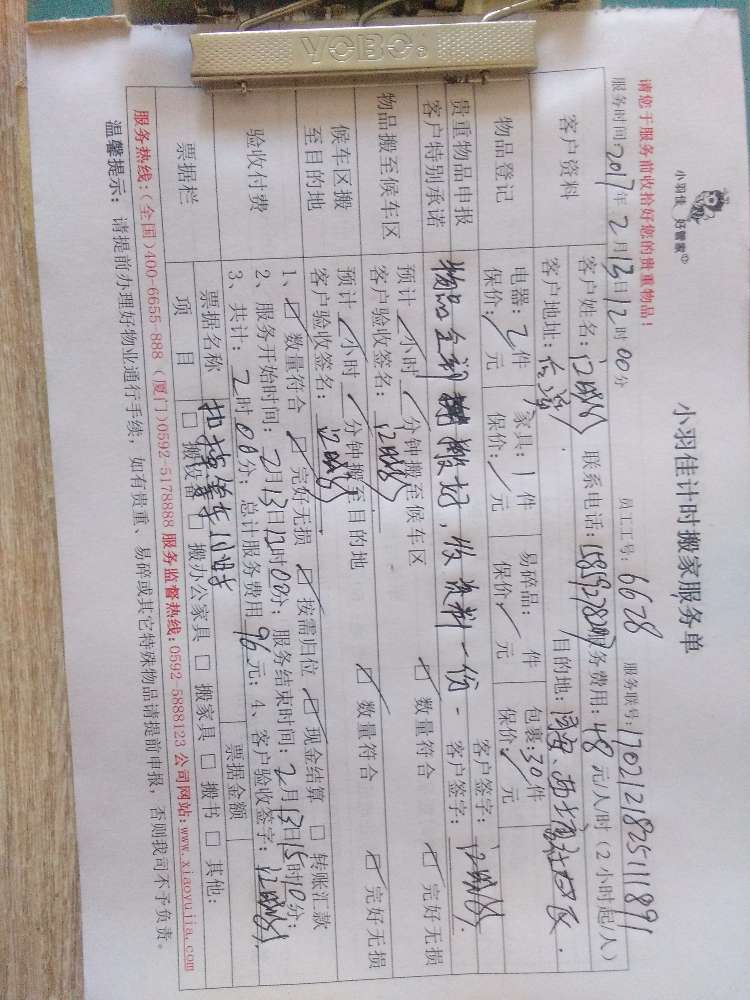 YOBO
小羽佳 好管家
小羽佳计时搬家服务单
请您于服务前收拾好您的贵重物品!
员工工号: 6628 服务联号: 1702121825111891
服务时间: 2017年 2月13日12时00分
客户资料
客户姓名: 联系电话: 服务费用: 48 元/人/时 (2小时起/人)
客户地址: 目的地:
物品登记
电器: 2件 家具: 1件 易碎品: 件 包裹: 30件
保价: 元 保价: 元 保价: 元 保价: 元
贵重物品申报 客户签字:
客户特别承诺 物品全部搬好, 收资料一份 客户签字:
物品搬至候车区
预计 小时 分钟搬至候车区 数量符合 完好无损
客户验收签名:
候车区搬至目的地
预计 小时 分钟搬至目的地 数量符合 完好无损
客户验收签名:
验收付费
1、 数量符合 完好无损 按需归位 现金结算 转账汇款
2、服务开始时间: 2月13日12时00分; 服务结束时间: 2月13日15时10分;
3、共计: 2时00分; 总计服务费用 96 元; 4、客户验收签字:
票据栏
票据名称 票据金额
项目 搬设备 搬办公家具 搬家具 搬书 其他:
服务热线: (全国) 400-6655-888 (厦门) 0592-5178888 服务监督热线: 0592-5888123 公司网站: www.xiaoyujia.com
温馨提示: 请提前办理好物业通行手续, 如有贵重、易碎或其它特殊物品请提前申报, 否则我司不予负责。